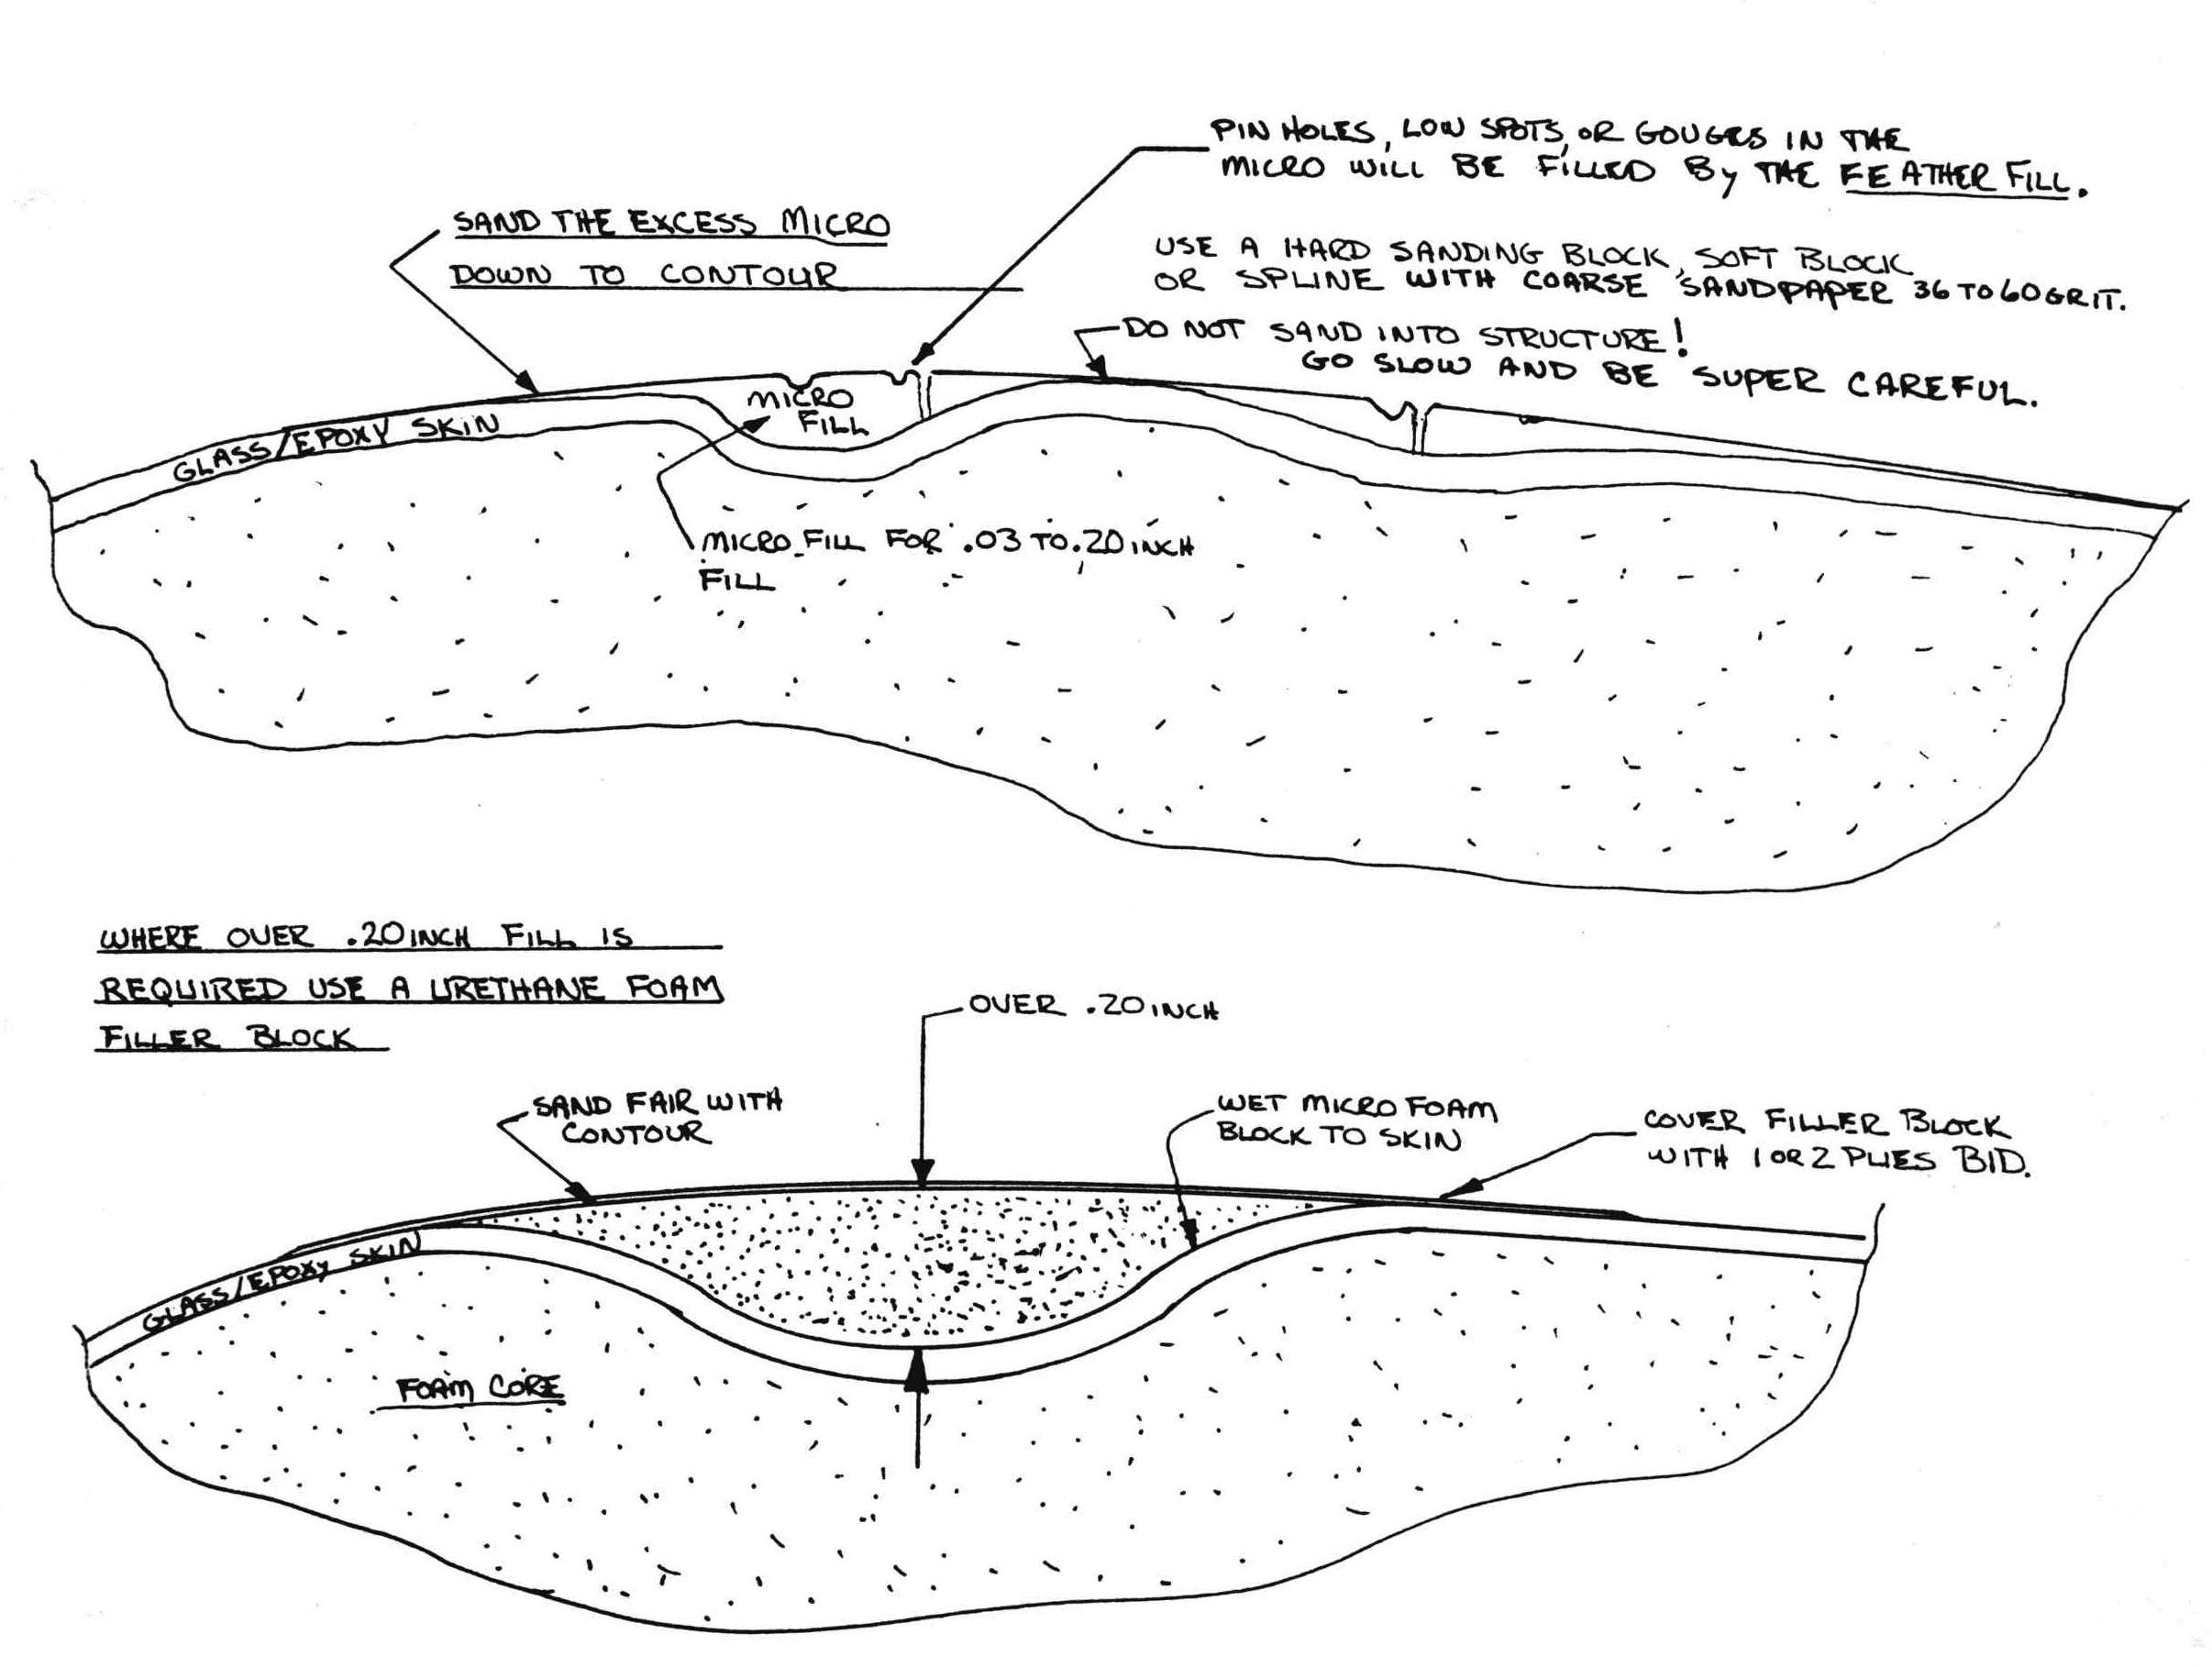 PIN HOLES, LOW SPOTS, OR GOUGES IN THE
MICRO WILL BE FILLED By THE FEATHER FILL.
SAND THE EXCESS MICRO
DOWN TO CONTOUR
USE A HARD SANDING BLOCK, SOFT BLOCK
OR SPLINE WITH COARSE SANDPAPER 36 TO 60 GRIT.
DO NOT SAND INTO STRUCTURE!
GO SLOW AND BE SUPER CAREFUL.
MICRO
FILL
GLASS/EPOXY SKIN
MICRO FILL FOR .03 TO .20 INCH
FILL
WHERE OVER .20 INCH FILL IS
REQUIRED USE A URETHANE FOAM
FILLER BLOCK
OVER .20 INCH
SAND FAIR WITH
CONTOUR
WET MICRO FOAM
BLOCK TO SKIN
COVER FILLER BLOCK
WITH 1 OR 2 PLIES BID.
GLASS/EPOXY SKIN
FOAM CORE